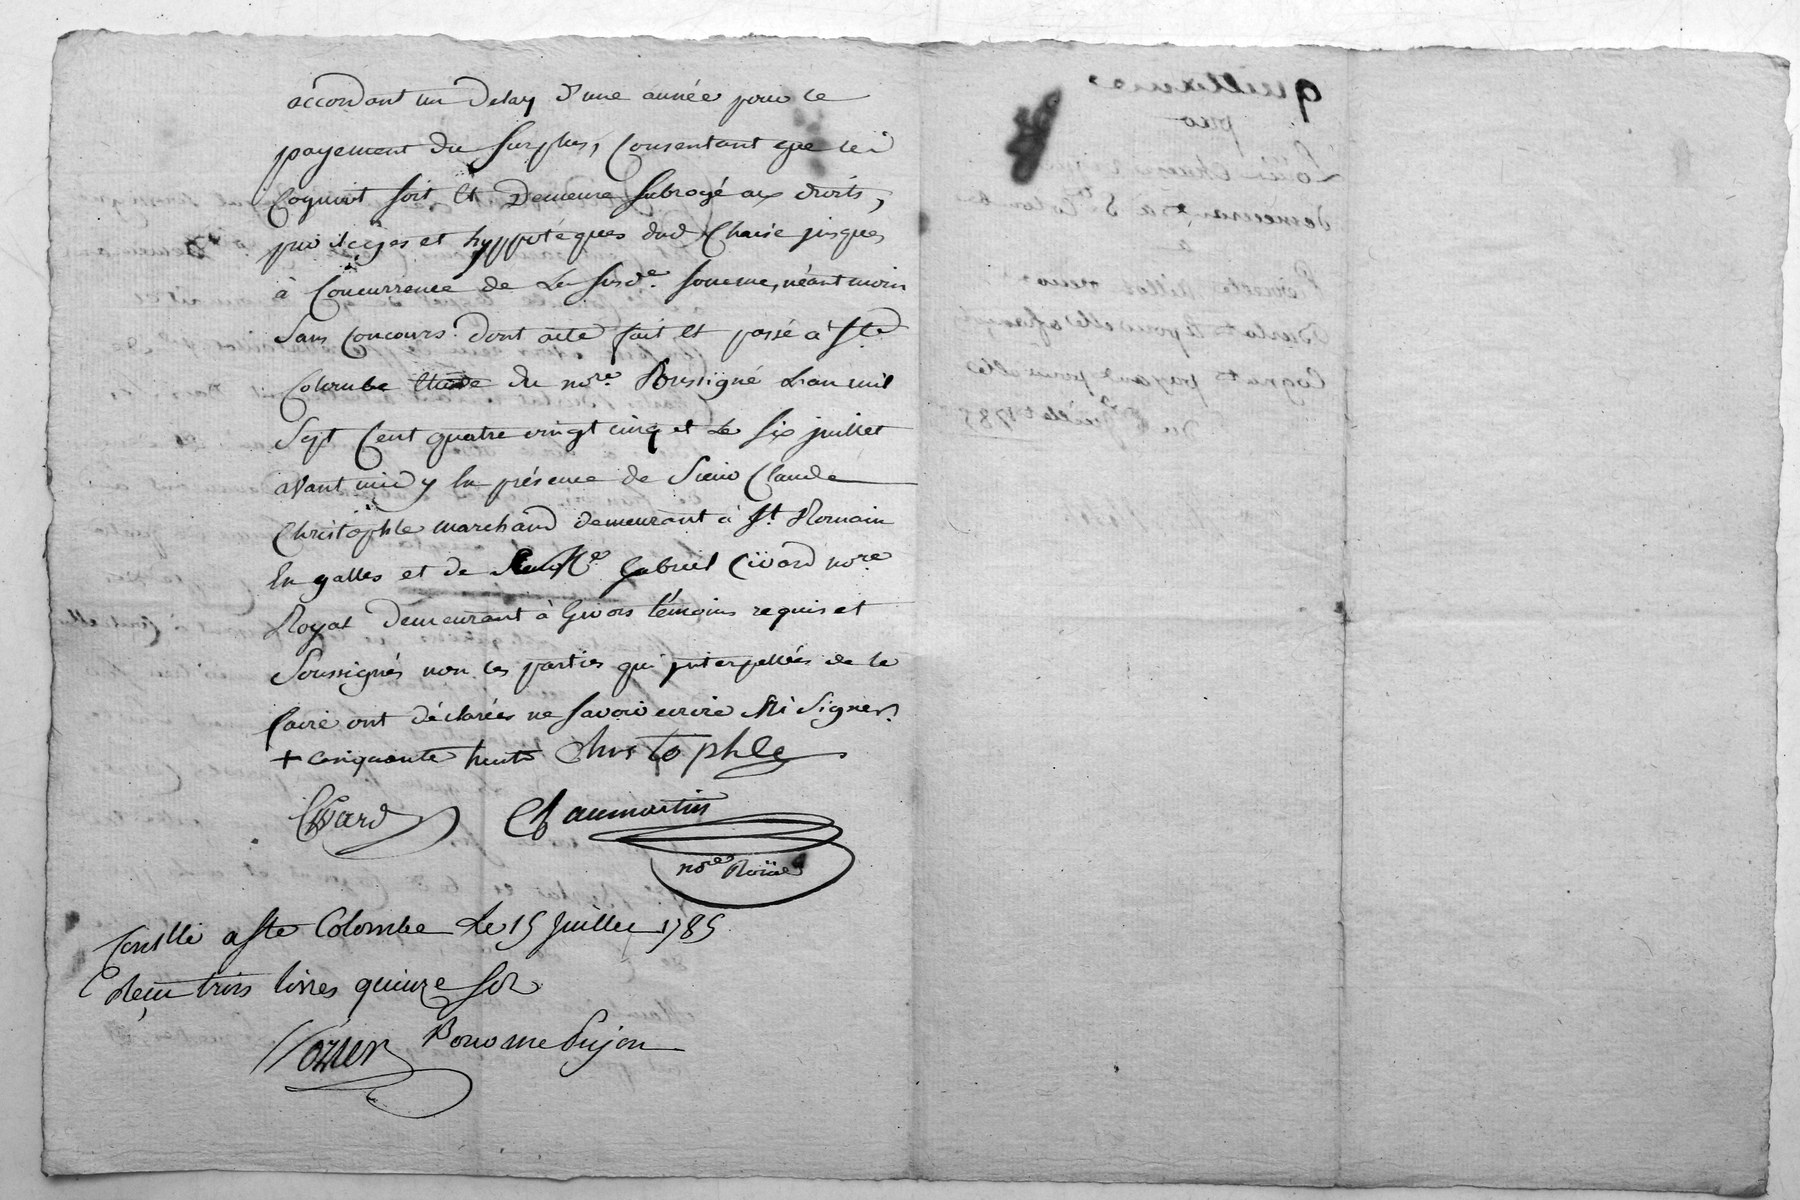 accordant un delay d'une année pour le
payement du surplus, Consentant que led
Cogniat soit et Demeure subrogé aux droits,
privileges et hyppotéques dud. Chaize jusques
à Concurrence de La susde. somme, néantmoin
sans Concours. dont acte fait et passé à Ste
Colombe Etude du nore. soussigné L'an mil
Sept Cent quatre vingt cinq et Le six juillet
avant midy En présence de Sieur Claude
Christophle marchand demeurant à St. Romain
En galles et de Me. gabriel Civard nore
Royal demeurant à Givors témoins requis et
Soussignés non les parties qui interpellées de le
faire ont déclarées ne savoir ecrire Ni Signer.
+ cinquante huit Christophle
Civard Chaumartin
nore Roial
Conllé a Ste Colombe Le 15 Juillet 1785
Reçu trois livres quinze sol
pour me Dujon
quittance
pour
demeurant a Ste Colombe
payant pour elle
Du 6 Juillet 1785